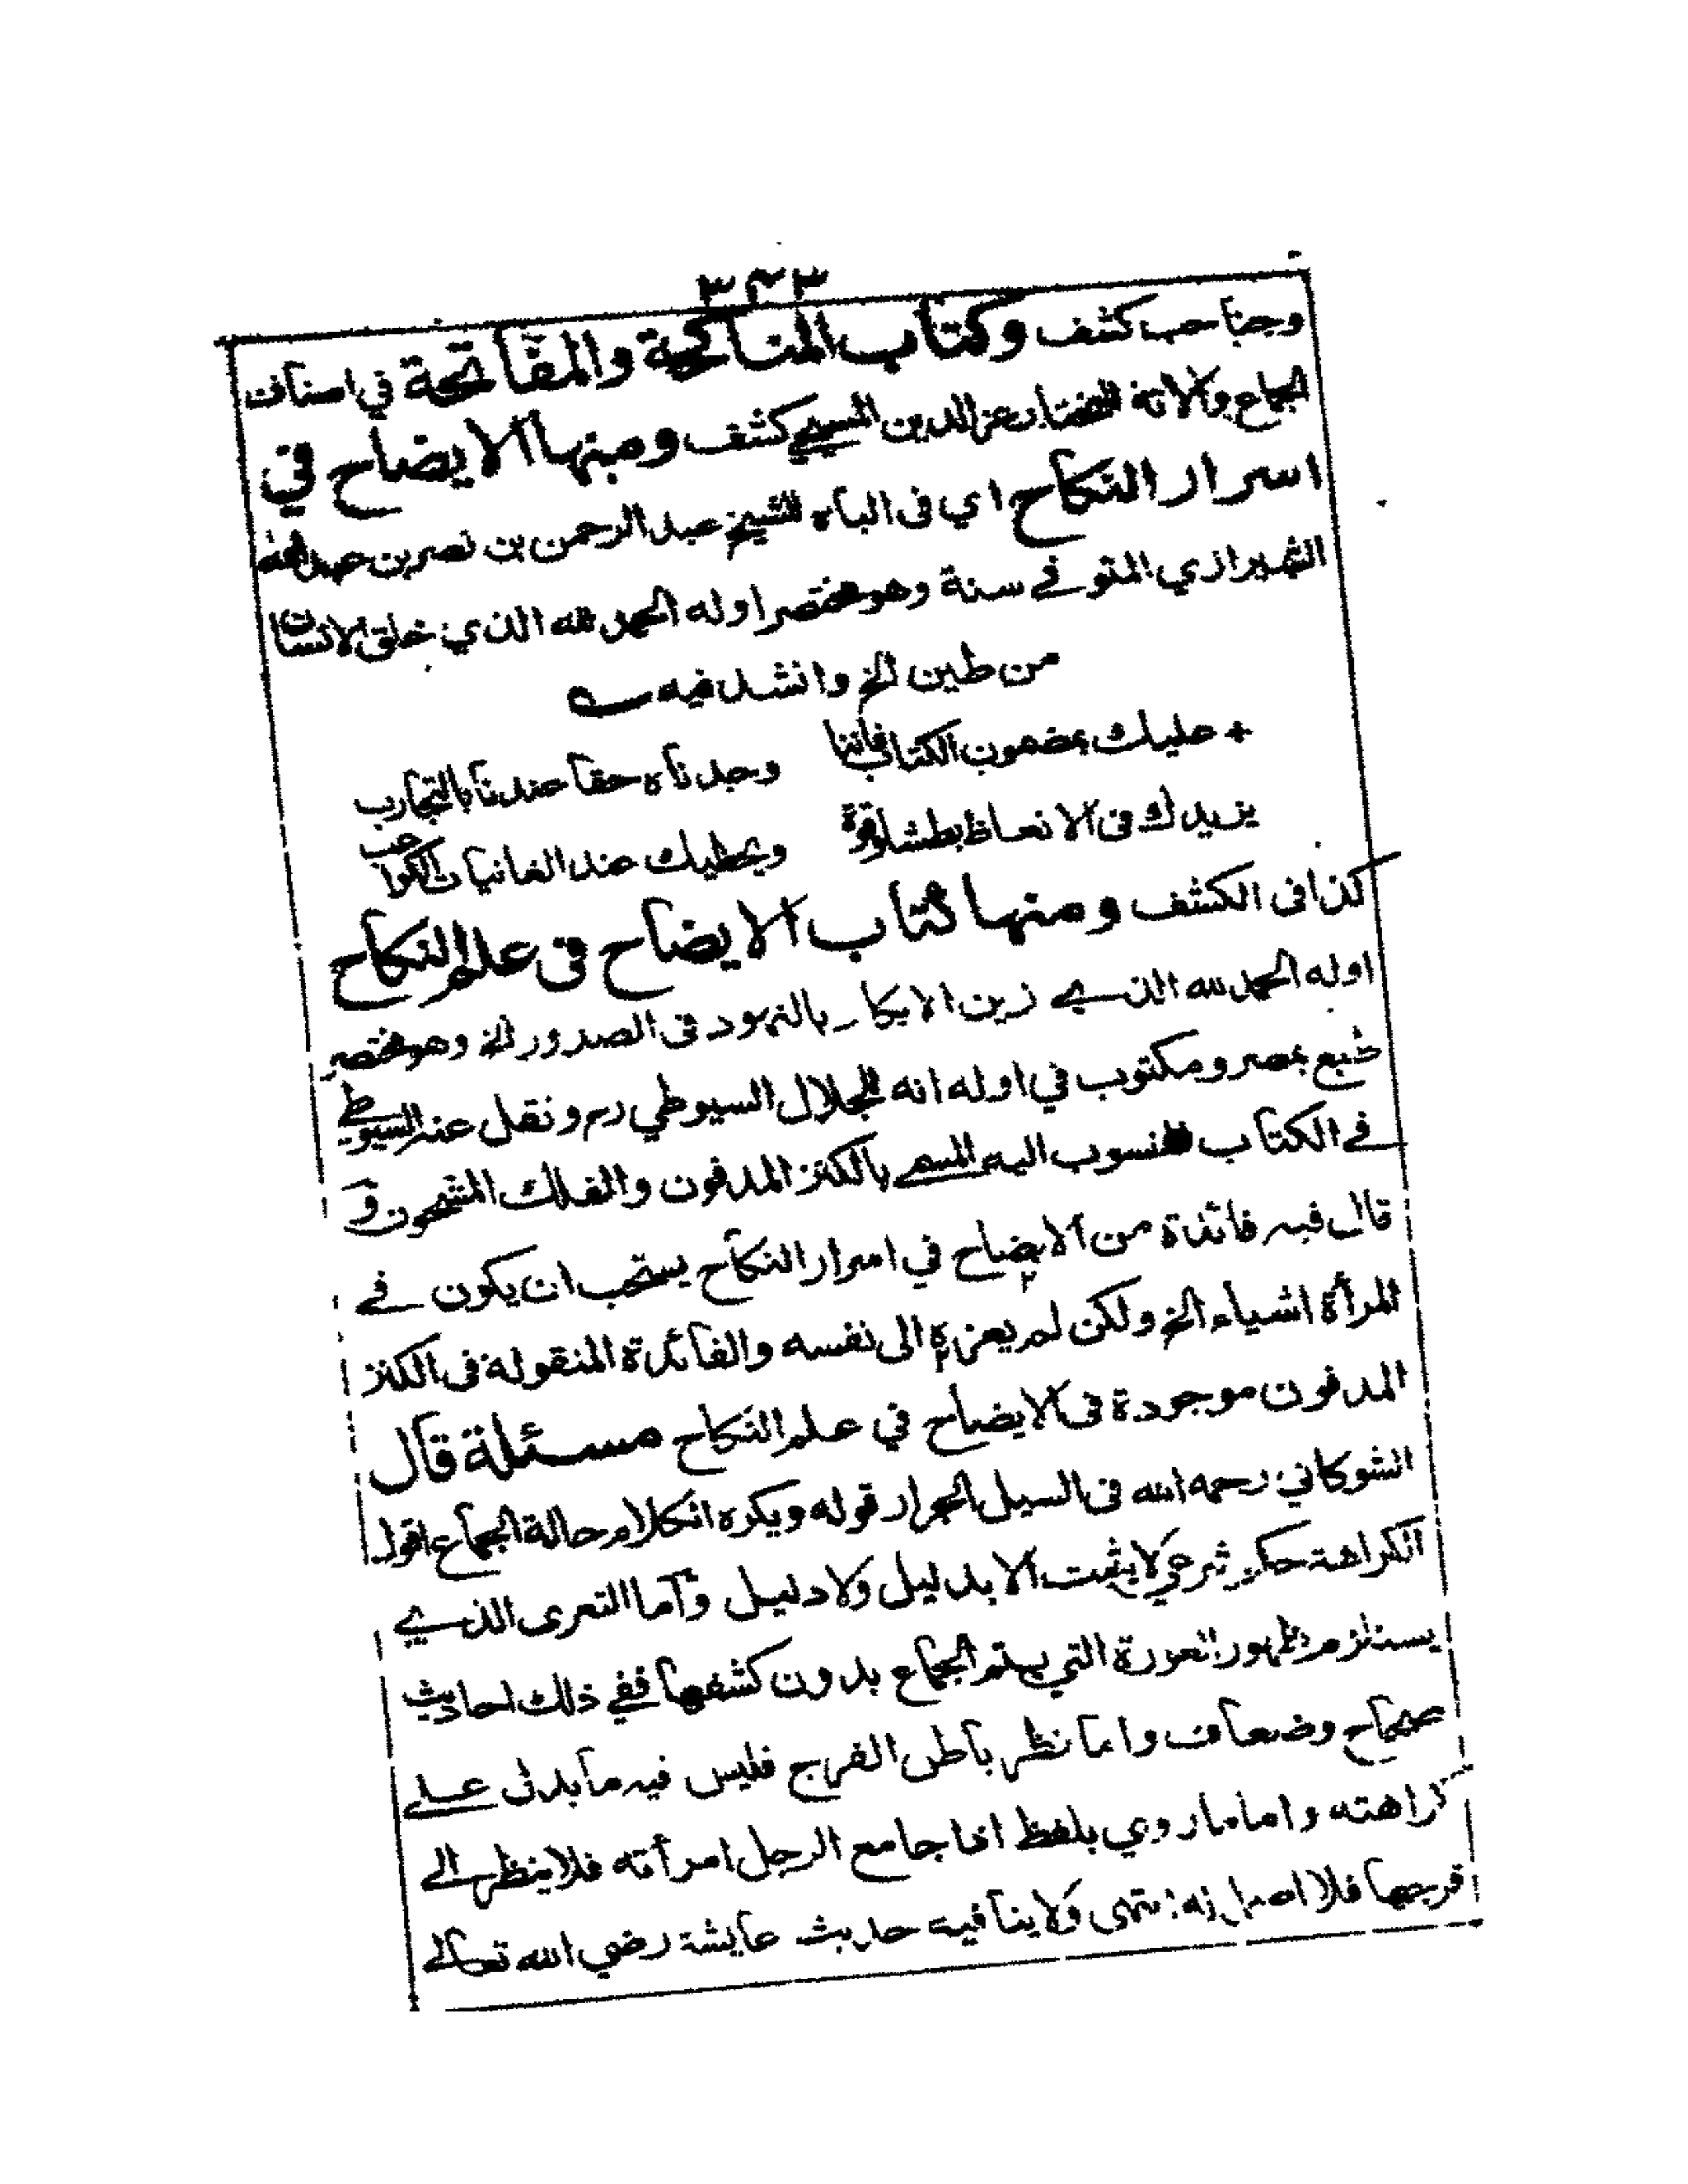 ٣٤٣
وصاحب كشف وكتاب المناكحة والمفاتحة في اصناف
الجماع والاته للمختار عز الدين المسبحي كشف ومنها الايضاح في
اسرار النكاح اي في الباه للشيخ عبد الرحمن بن نصر بن عبد الله
الشيرازي المتوفے سنة وهو مختصر اوله الحمد لله الذي خلق الانسان
من طين الخ وانشد فيه
+ عليك بمضمون الكتاب فاننا وجدناه حقا عندنا بالتجارب
يزيدك فى الانعاظ بطشا وقوة ويحظيك عند الغانيات الكواعب
كذا فى الكشف ومنها كتاب الايضاح في علم النكاح
اوله الحمد لله الذے زين الابكار بالنهود فى الصدور الخ وهو مختصر
طبع بمصر ومكتوب في اوله انه للجلال السيوطي رح ونقل عنه السيوطے
فے الكتاب المنسوب اليه المسمے بالكنز المدفون والفلك المشحون و
قال فيه فائدة من الايضاح في اسرار النكاح يستحب ان يكون فے
المرأة اشياء الخ ولكن لم يعزه الى نفسه والفائدة المنقولة فى الكنز
المدفون موجودة فى الايضاح في علم النكاح مسئلة قال
الشوكاني رحمه الله فى السيل الجرار قوله ويكره الكلام حالة الجماع اقول
الكراهة حكم شرعي لا يثبت الا بدليل ولا دليل واما التعرى الذے
يستلزم ظهور العورة التي يتم الجماع بدون كشفها ففي ذلك احاديث
صحاح وضعاف واما نظر باطن الفرج فليس فيه ما يدل علے
كراهته واما ما روي بلفظ اذا جامع الرجل امرأته فلا ينظر الے
فرجها فلا اصل له انتهى ولا ينافيه حديث عايشة رضي الله تعالے